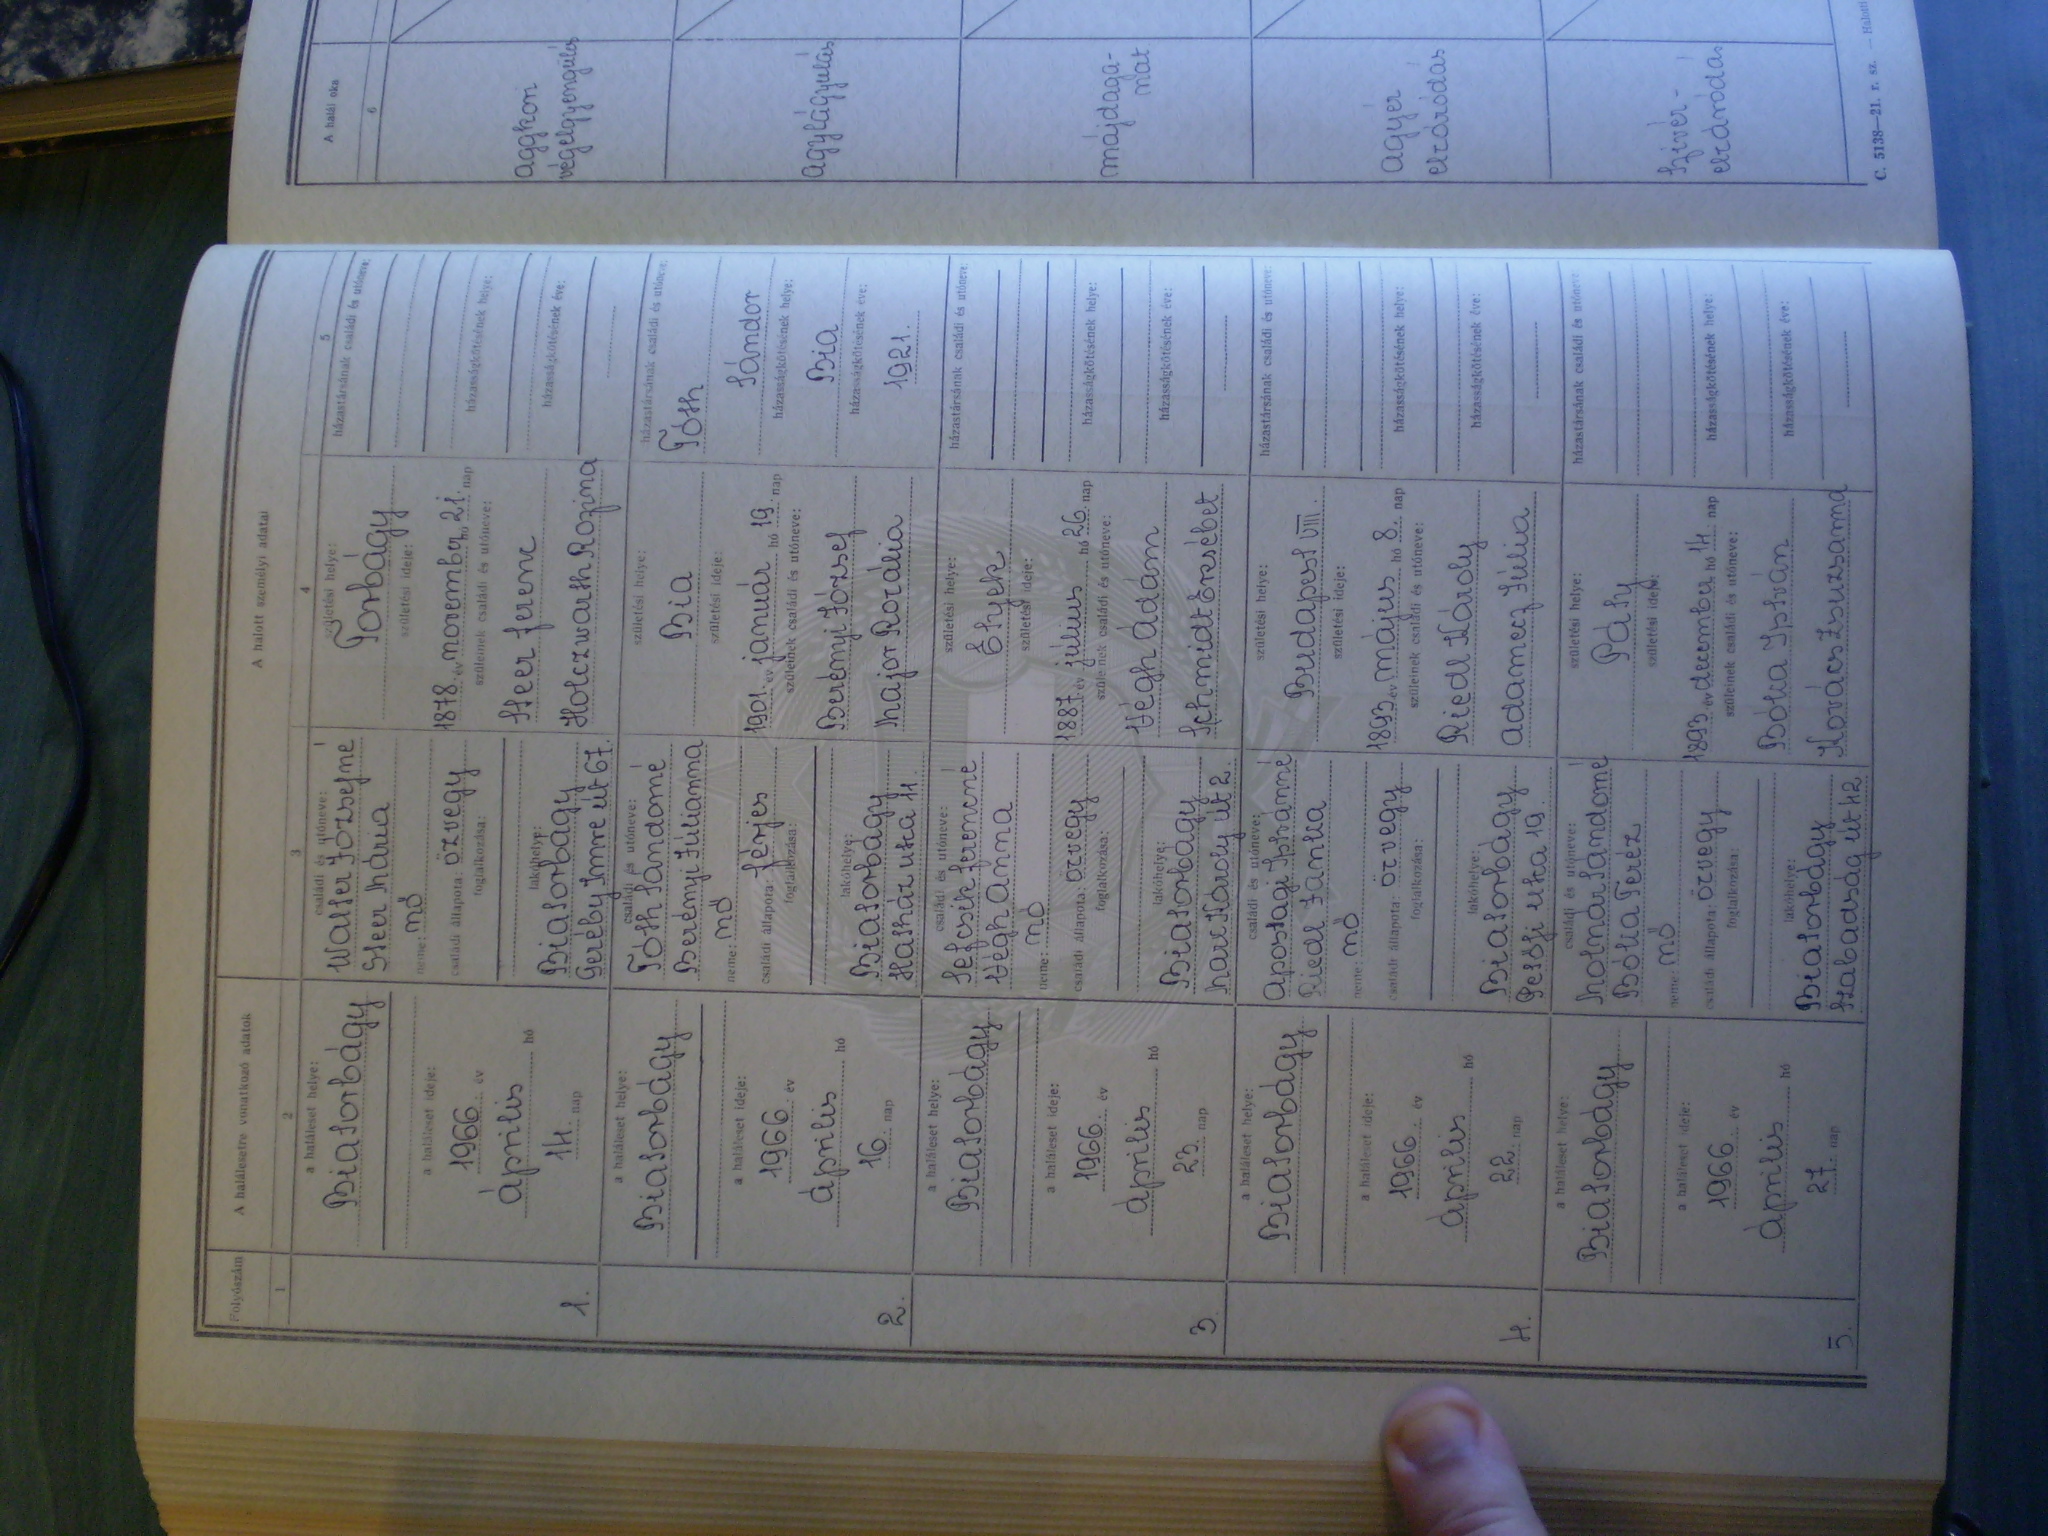 Folyószám
A halálesetre vonatkozó adatok
A halott személyi adatai
A halál oka
1
2
3
4
5
6
1.
a haláleset helye:
Biatorbágy
a haláleset ideje:
1966. év
április hó
14. nap
családi és utóneve:
Walter Józsefné
Steer Mária
neme: nő
családi állapota: özvegy
foglalkozása:
lakóhelye:
Biatorbágy
Geréby Imre út 67.
születési helye:
Torbágy
születési ideje:
1878. év november hó 21. nap
szüleinek családi és utóneve:
Steer Ferenc
Holczwarth Rozina
házastársának családi és utóneve:
házasságkötésének helye:
házasságkötésének éve:
aggkori
végelgyengülés
2.
a haláleset helye:
Biatorbágy
a haláleset ideje:
1966. év
április hó
16. nap
családi és utóneve:
Tóth Sándorné
Berényi Júlianna
neme: nő
családi állapota: férjes
foglalkozása:
lakóhelye:
Biatorbágy
Határ utca 11.
születési helye:
Bia
születési ideje:
1901. év január hó 19. nap
szüleinek családi és utóneve:
Berényi József
Major Rozália
házastársának családi és utóneve:
Tóth
Sándor
házasságkötésének helye:
Bia
házasságkötésének éve:
1921.
agylágyulás
3.
a haláleset helye:
Biatorbágy
a haláleset ideje:
1966. év
április hó
23. nap
családi és utóneve:
Sefcsik Ferencné
Végh Anna
neme: nő
családi állapota: özvegy
foglalkozása:
lakóhelye:
Biatorbágy
Marx Károly út 2.
születési helye:
Etyek
születési ideje:
1887. év július hó 26. nap
szüleinek családi és utóneve:
Végh Ádám
Schmidt Erzsébet
házastársának családi és utóneve:
házasságkötésének helye:
házasságkötésének éve:
májdaga-
nat
4.
a haláleset helye:
Biatorbágy
a haláleset ideje:
1966. év
április hó
22. nap
családi és utóneve:
Apostagi Istvánné
Riedl Janka
neme: nő
családi állapota: özvegy
foglalkozása:
lakóhelye:
Biatorbágy
Petőfi utca 19.
születési helye:
Budapest VIII.
születési ideje:
1893. év május hó 8. nap
szüleinek családi és utóneve:
Riedl Károly
Adamecz Júlia
házastársának családi és utóneve:
házasságkötésének helye:
házasságkötésének éve:
agyér
elzáródás
5.
a haláleset helye:
Biatorbágy
a haláleset ideje:
1966. év
április hó
27. nap
családi és utóneve:
Molnár Sándorné
Bóka Teréz
neme: nő
családi állapota: özvegy
foglalkozása:
lakóhelye:
Biatorbágy
Szabadság út 42
születési helye:
Páty
születési ideje:
1893. év december hó 14. nap
szüleinek családi és utóneve:
Bóka István
Kovács Zsuzsanna
házastársának családi és utóneve
házasságkötésének helye:
házasságkötésének éve:
szívér-
elzáródás
C. 5138—21. r. sz. — Halotti